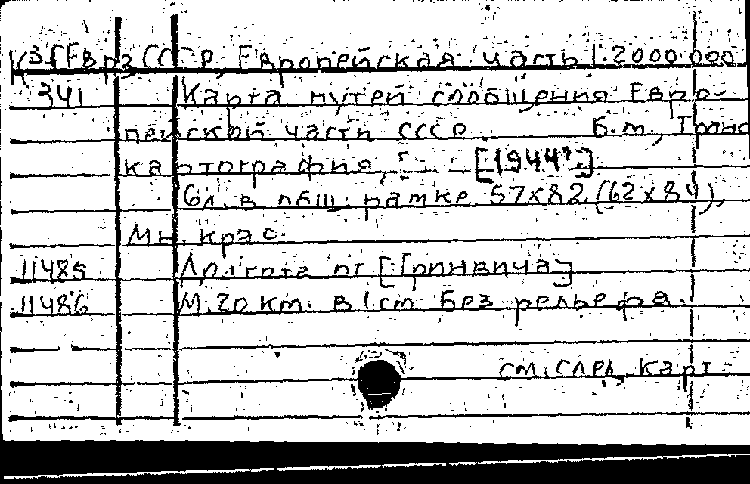 К3 СССР, Европейская часть 1:2000.000
341 Карта путей сообщения Евро-
пейской части СССР. Б.м., Транс
картография, [1944?].
6л. в общ. рамке 57х82 (62х84),
Мн. крас.
11485 Долгота от [Гринвича]
11486 М. 20 км. в 1 см. Без рельефа.
см. след. карт.